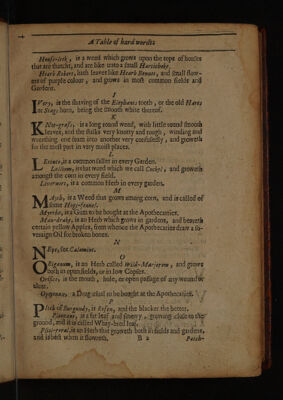 A Table of hard wordes
House-leek, is a weed which grows upon the tops of houses
that are thatcht, and are like unto a small Hartichoke.
Hearb Robert, hath leaves like Hearb Bennet, and small flow-
ers of purple colour, and grows in most common fields and
Gardens.
I
IVory, is the shaving of the Elephants tooth, or the old Harts
or Stags horn, being the smooth white thereof.
K
KNot-grass, is a long round weed, with little round smooth
leaves, and the stalks very knotty and rough, winding and
wreathing one seam into another very confusedly, and groweth
for the most part in very moist places.
L
LEttuce, is a common sallet in every Garden.
Lollium, is that weed which we call Cockel, and groweth
amongst the corn in every field.
Liverwort, is a common Herb in every garden.
M
MAyth, is a Weed that grows among corn, and is called of
some Hogs-fennel.
Myrrhe, is a Gum to be bought at the Apothecaries.
Man-drake, is an Herb which grows in gardens, and beareth
certain yellow Apples, from whence the Apothecaries draw a so-
veraign Oil for broken bones.
N
NEpe, see Calamint.
O
ORiganum, is an Herb called wild-Marjoram, and grows
both in open fields, or in low Copses.
Orifice, is the mouth, hole, or open passage of any wound or
ulcer.
Opoponax, a Drug usual to be bought at the Apothecaries.
P
PItch of Burgundy, is Rosen, and the blacker the better.
Plantane, is a flat leaf and sinewy, growing close to the
ground, and it is called Whay-bred leaf.
is an Herb that groweth both in fields and gardens,
and is best when it flowreth,
B 2